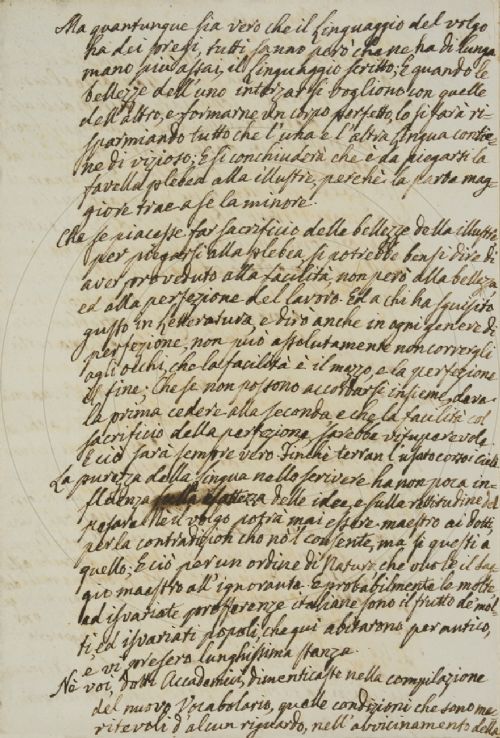 Ma quantunque sia vero che il Linguaggio del volgo
ha dei pregi, tutti sanno però che ne ha di lunga
mano più assai, il linguaggio scritto; E quando le
bellezze dell'uno interzarsi vogliono con quelle
dell'altro, e formarne un corpo perfetto, lo si farà ri-
sparmiando tutto che l'una e l'altra Lingua contie-
ne di vizioso; E si conchiuderà che è da piegarsi la
favella plebea alla illustre, perchè la parte mag-
giore trae a se la minore.
Che se piacesse far sacrificio delle bellezze della illustre
per piegarsi alla plebea si potrebbe bensì dire di
aver proveduto alla facilità, non però alla bellezza
ed alla perfezione del lavoro. Ed a chi ha squisito
gusto in Letteratura, e dirò anche in ogni genere di
perfezione, non può assolutamente non corrergli
agli occhi, che la facilità è il mezzo, e la perfezione
il fine; Che se non possono accordarsi insieme, deve
la prima cedere alla seconda e che la facilità col
sacrificio della perfezione sarebbe vituperevole.
E ciò sarà sempre vero finchè terran l'usato corso i cieli
La purezza della lingua nello scrivere ha non poca in-
fluenza sulla delle idee, e sulla rettitudine del
pensare. Nè il volgo potrà mai essere maestro ai dotti
per la contradizion che nol consente, ma sì questi a
quello; E ciò per un ordine di Natura che vuole il sag-
gio maestro all'ignorante. E probabilmente le molte
ed isvariate profferenze italiane sono il frutto de' mol-
ti, ed isvariati popoli, che qui abitarono per antico,
e vi presero lunghissima stanza.
Nè voi, dotti Accademici, dimenticaste nella compilazione
del nuovo Vocabolario, quelle condizioni che sono me-
ritevoli d'alcun riguardo, nell'avvicinamento della